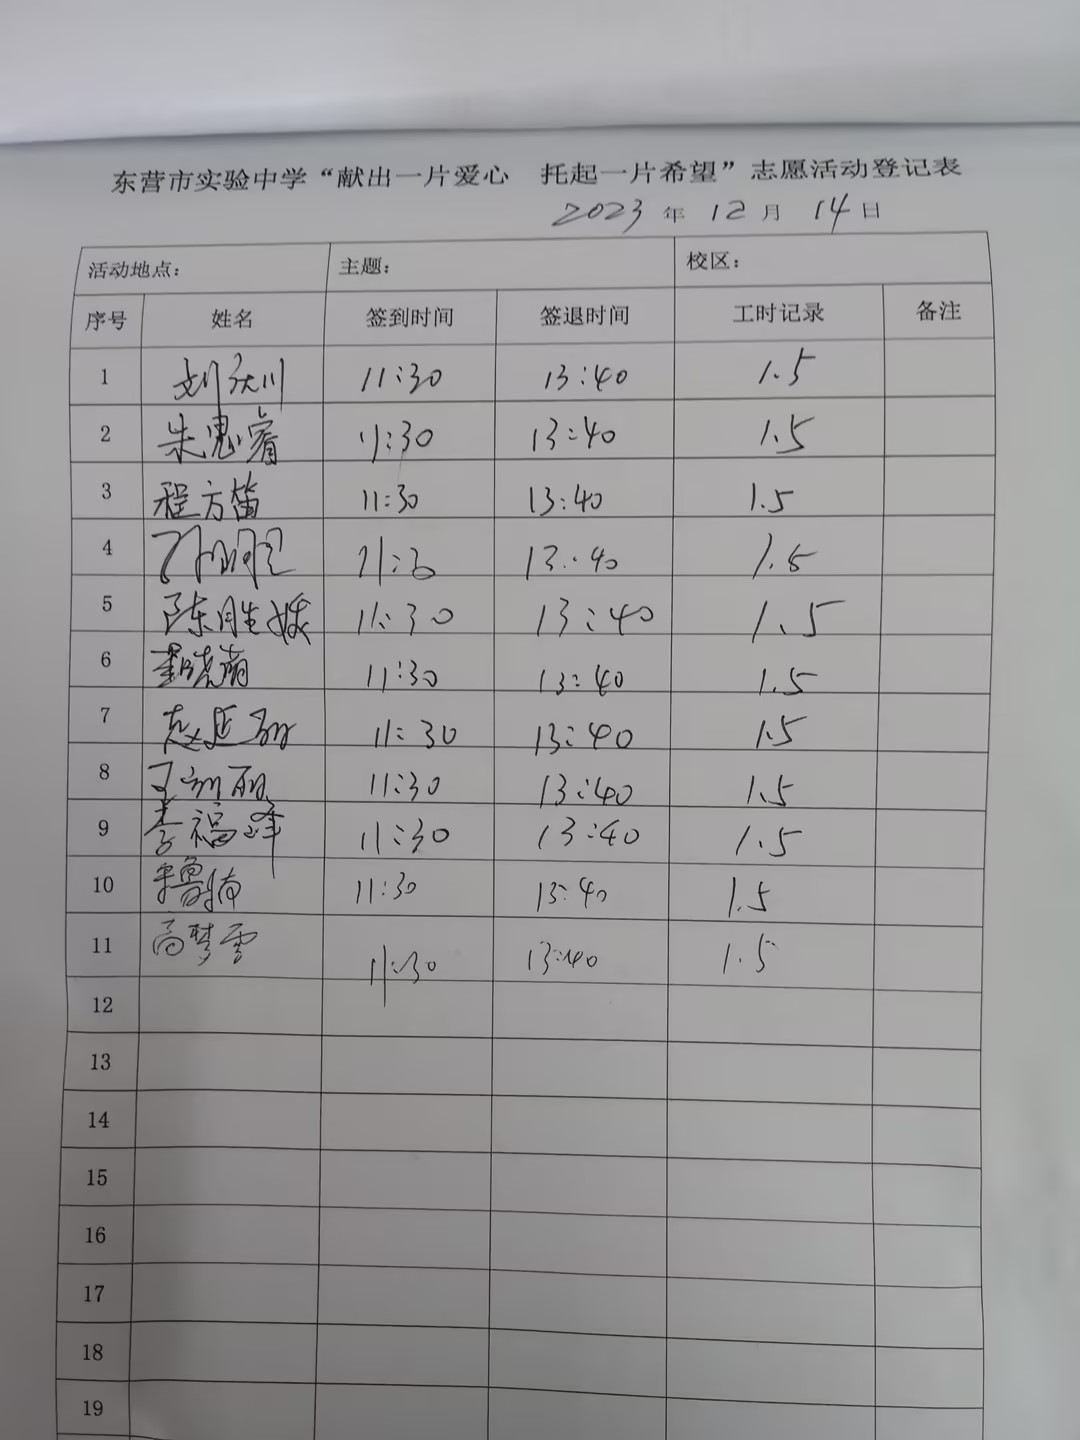 东营市实验中学“献出一片爱心 托起一片希望”志愿活动登记表
2023 年 12 月 14 日
活动地点: 主题: 校区:
序号 姓名 签到时间 签退时间 工时记录 备注
1 刘庆川 11:30 13:40 1.5
2 朱惠睿 11:30 13:40 1.5
3 程方笛 11:30 13:40 1.5
4 11:30 13:40 1.5
5 陈胜媛 11:30 13:40 1.5
6 11:30 13:40 1.5
7 赵延 11:30 13:40 1.5
8 王 丽 11:30 13:40 1.5
9 李福峰 11:30 13:40 1.5
10 11:30 13:40 1.5
11 高梦雪 11:30 13:40 1.5
12
13
14
15
16
17
18
19